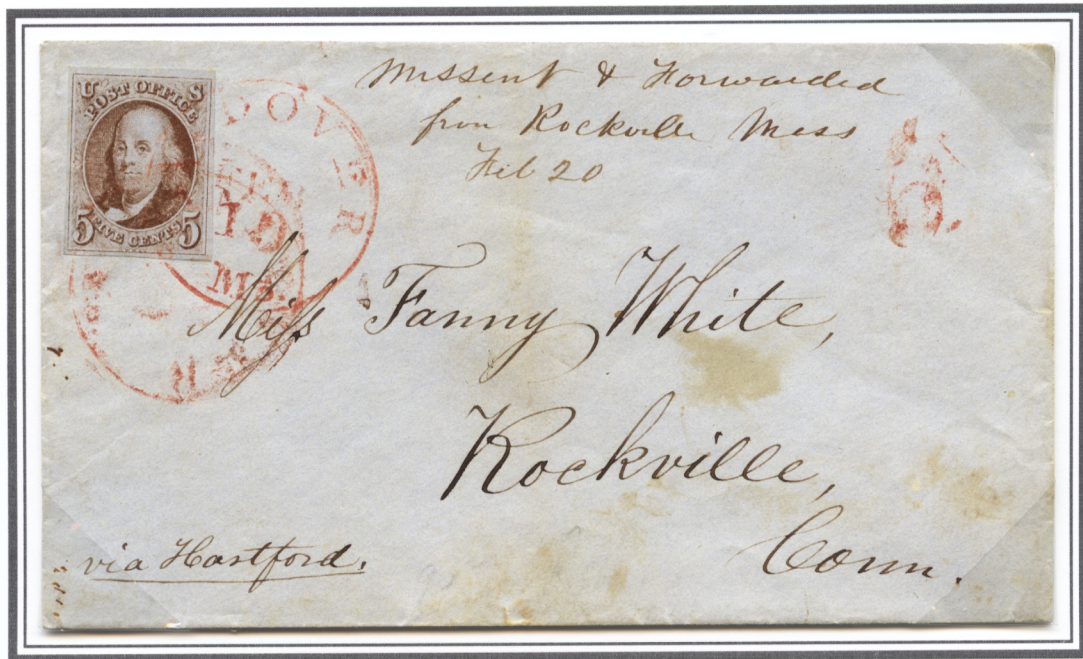 U S
POST OFFICE
5 FIVE CENTS 5
DOVER
Missent & Forwarded
from Rockville Mass
Feb 20
5
Miss Fanny White,
Rockville,
Conn.
via Hartford.